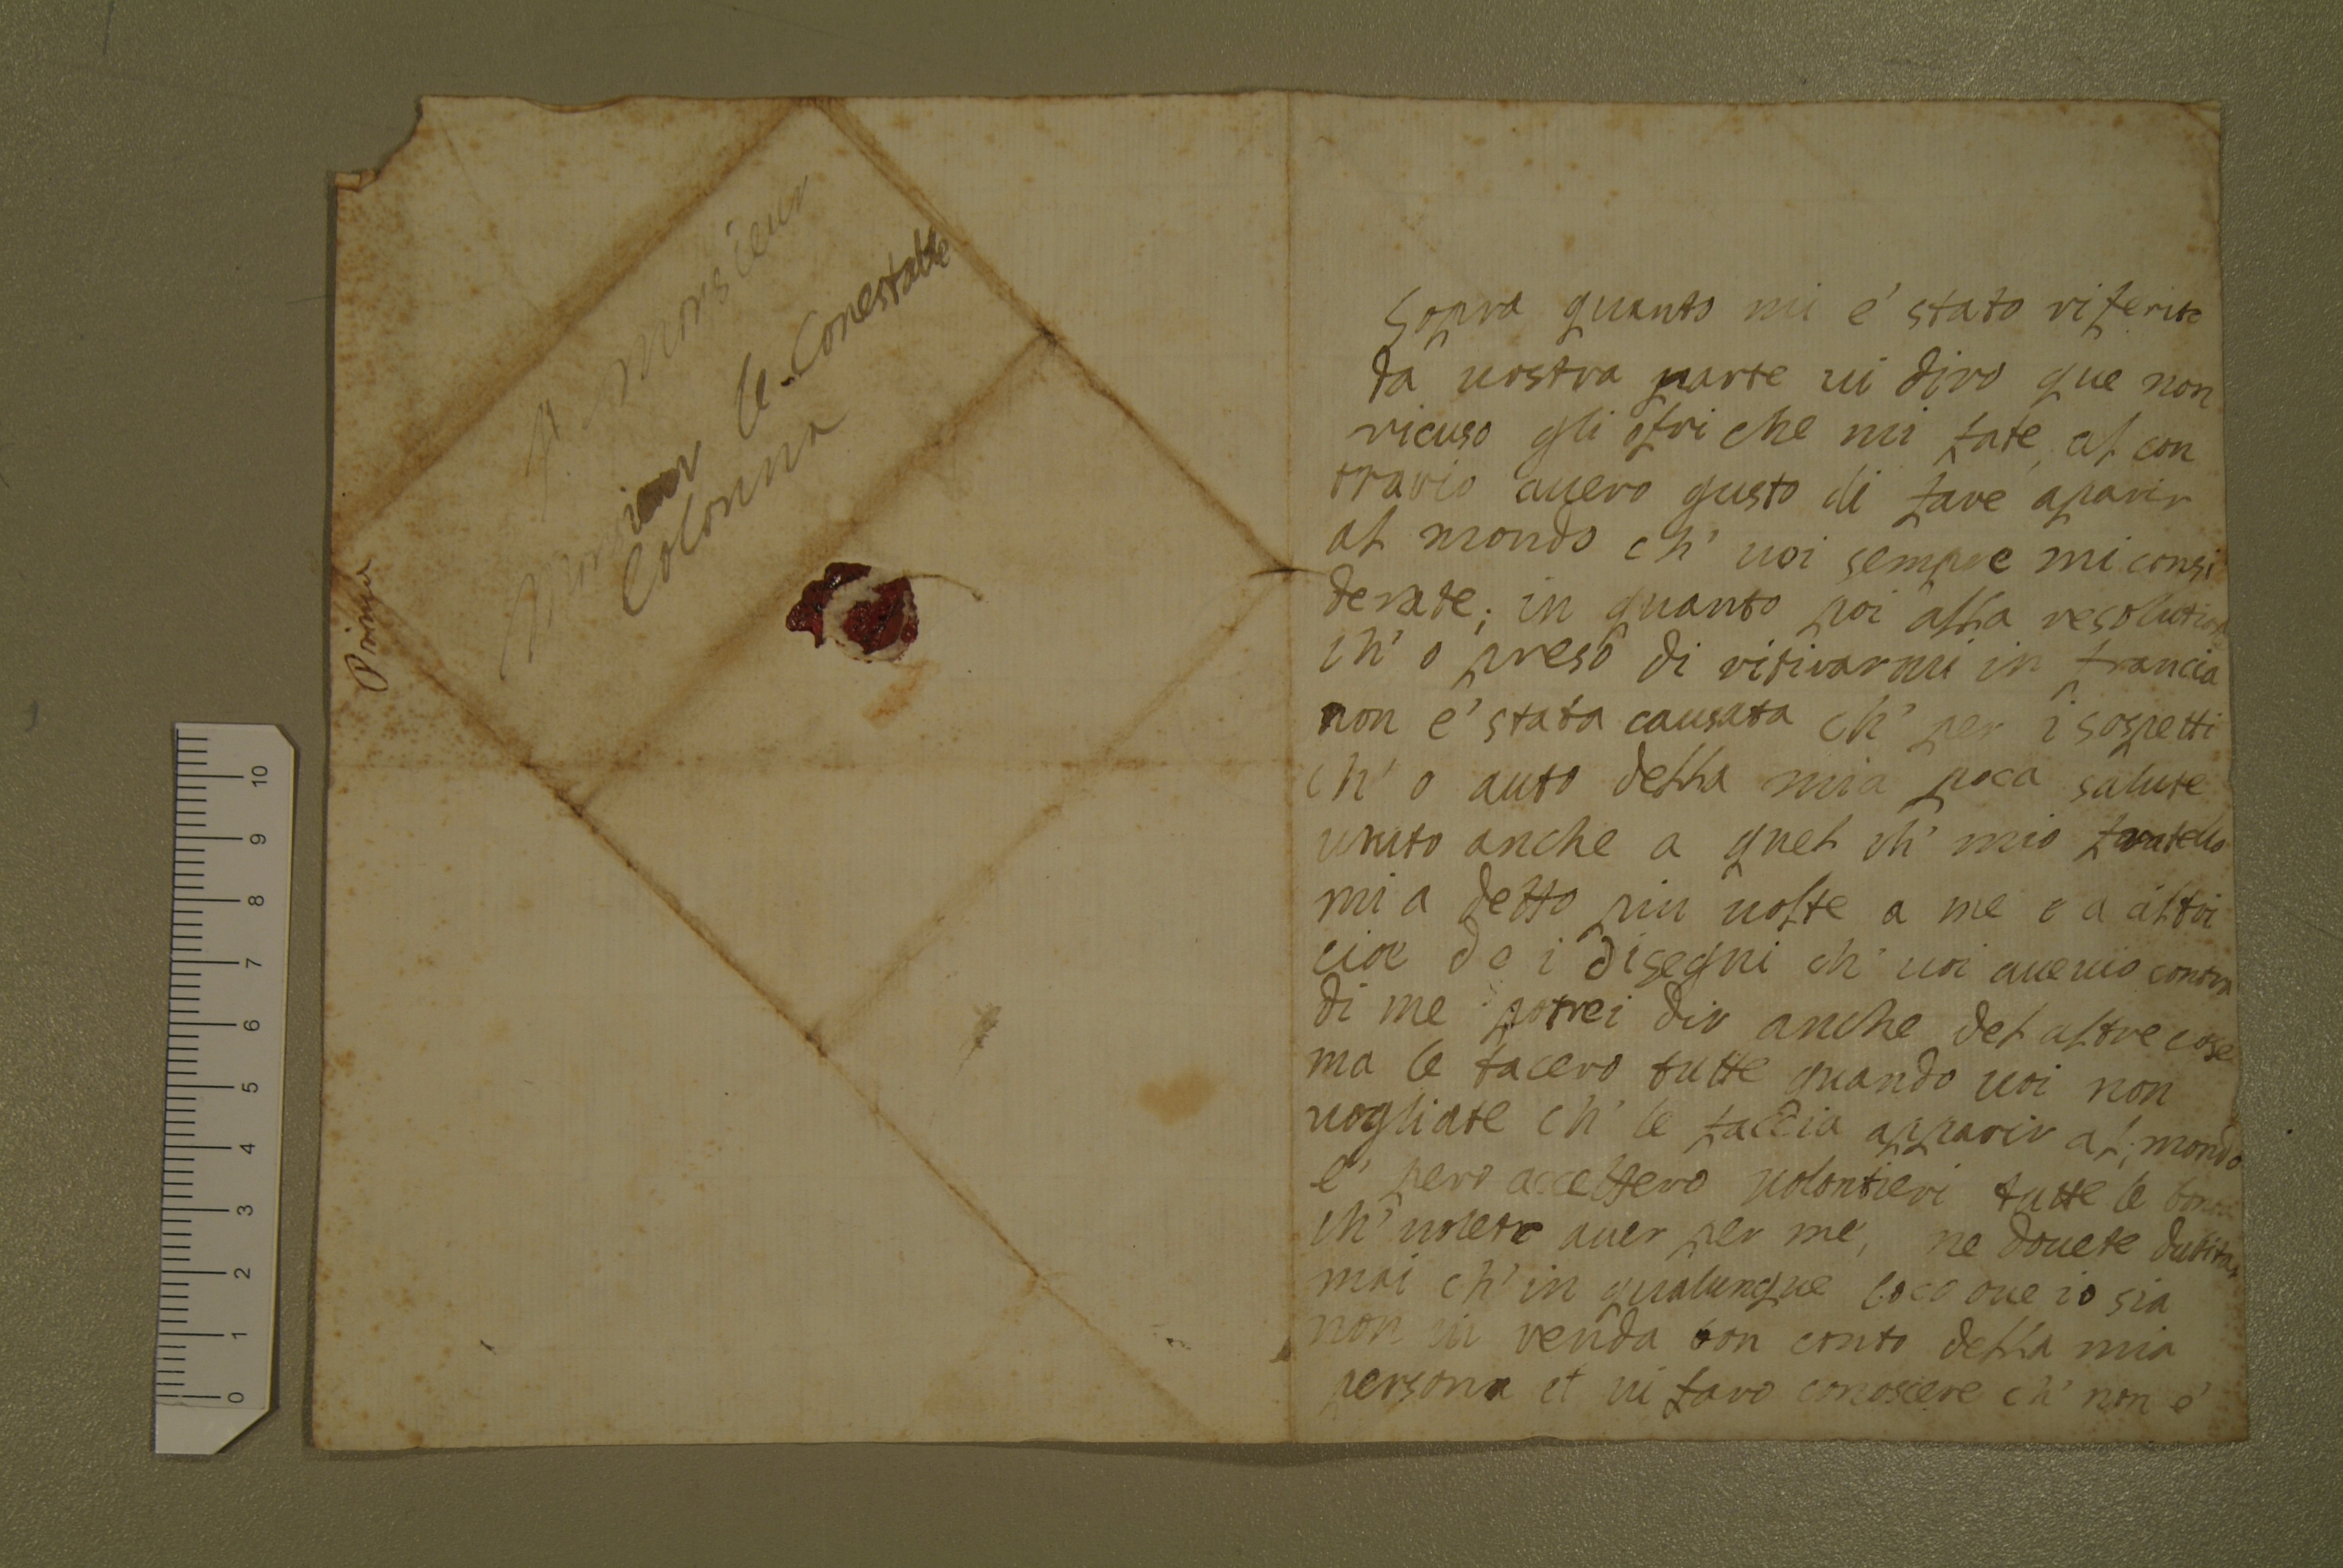 A Monsieur
Monsieur le Conestable
Colonna
Prima
Sopra quanto mi e' stato riferito
da vostra parte vi diro que non
ricuso gli ofri che mi fate, al con
trario avero gusto di fare aparir
al mondo ch' voi sempre mi consi
derate; in quanto poi alla resolution
ch' o preso di ritirarmi in francia
non e' stata causata ch' per i sospetti
ch' o auto della mia poca salute
unito anche a quel ch' mio fratello
mi a detto piu volte a me e a altri
cioe de i disegni ch' voi avevio contra
di me potrei dir anche del altre cose
ma le tacero tutte quando voi non
vogliate ch' le faccia apparir al mondo
e' pero accettero volontieri tutte le
ch' volete aver per me, ne dovete dubitar
mai ch' in qualunque loco ove io sia
non vi renda bon conto della mia
persona et vi faro conoscere ch' non e'
0 1 2 3 4 5 6 7 8 9 10